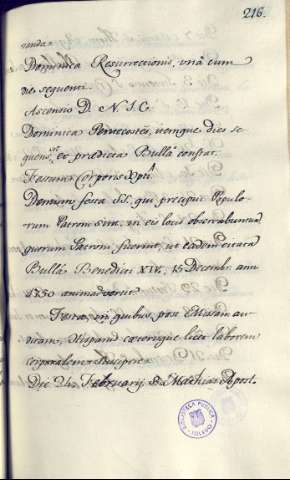 216.
randa.
Dominica Resurreccionis, unà cum
die sequenti.
Ascensio D. N. J. C.
Dominica Pentecostes, itemque dies se
quens, ut ex prædicta Bullâ constat.
Festum Corporis Xpti
Demum festa SS. qui precipui Populo
rum Patroni sint, in eis locis observabuntur
quorum Patroni fuerint, ut eadem citata
Bullâ Benedicti XIV. 15 Decembr. anni
1750 animadvertit.
Feriæ, in quibus, post Missam au
ditam, Hispani cæterique licite laborem
corporalem suscipere
Die 24. Februarij S. Mathias Apost.
BIBLIOTECA PUBLICA
TOLEDO